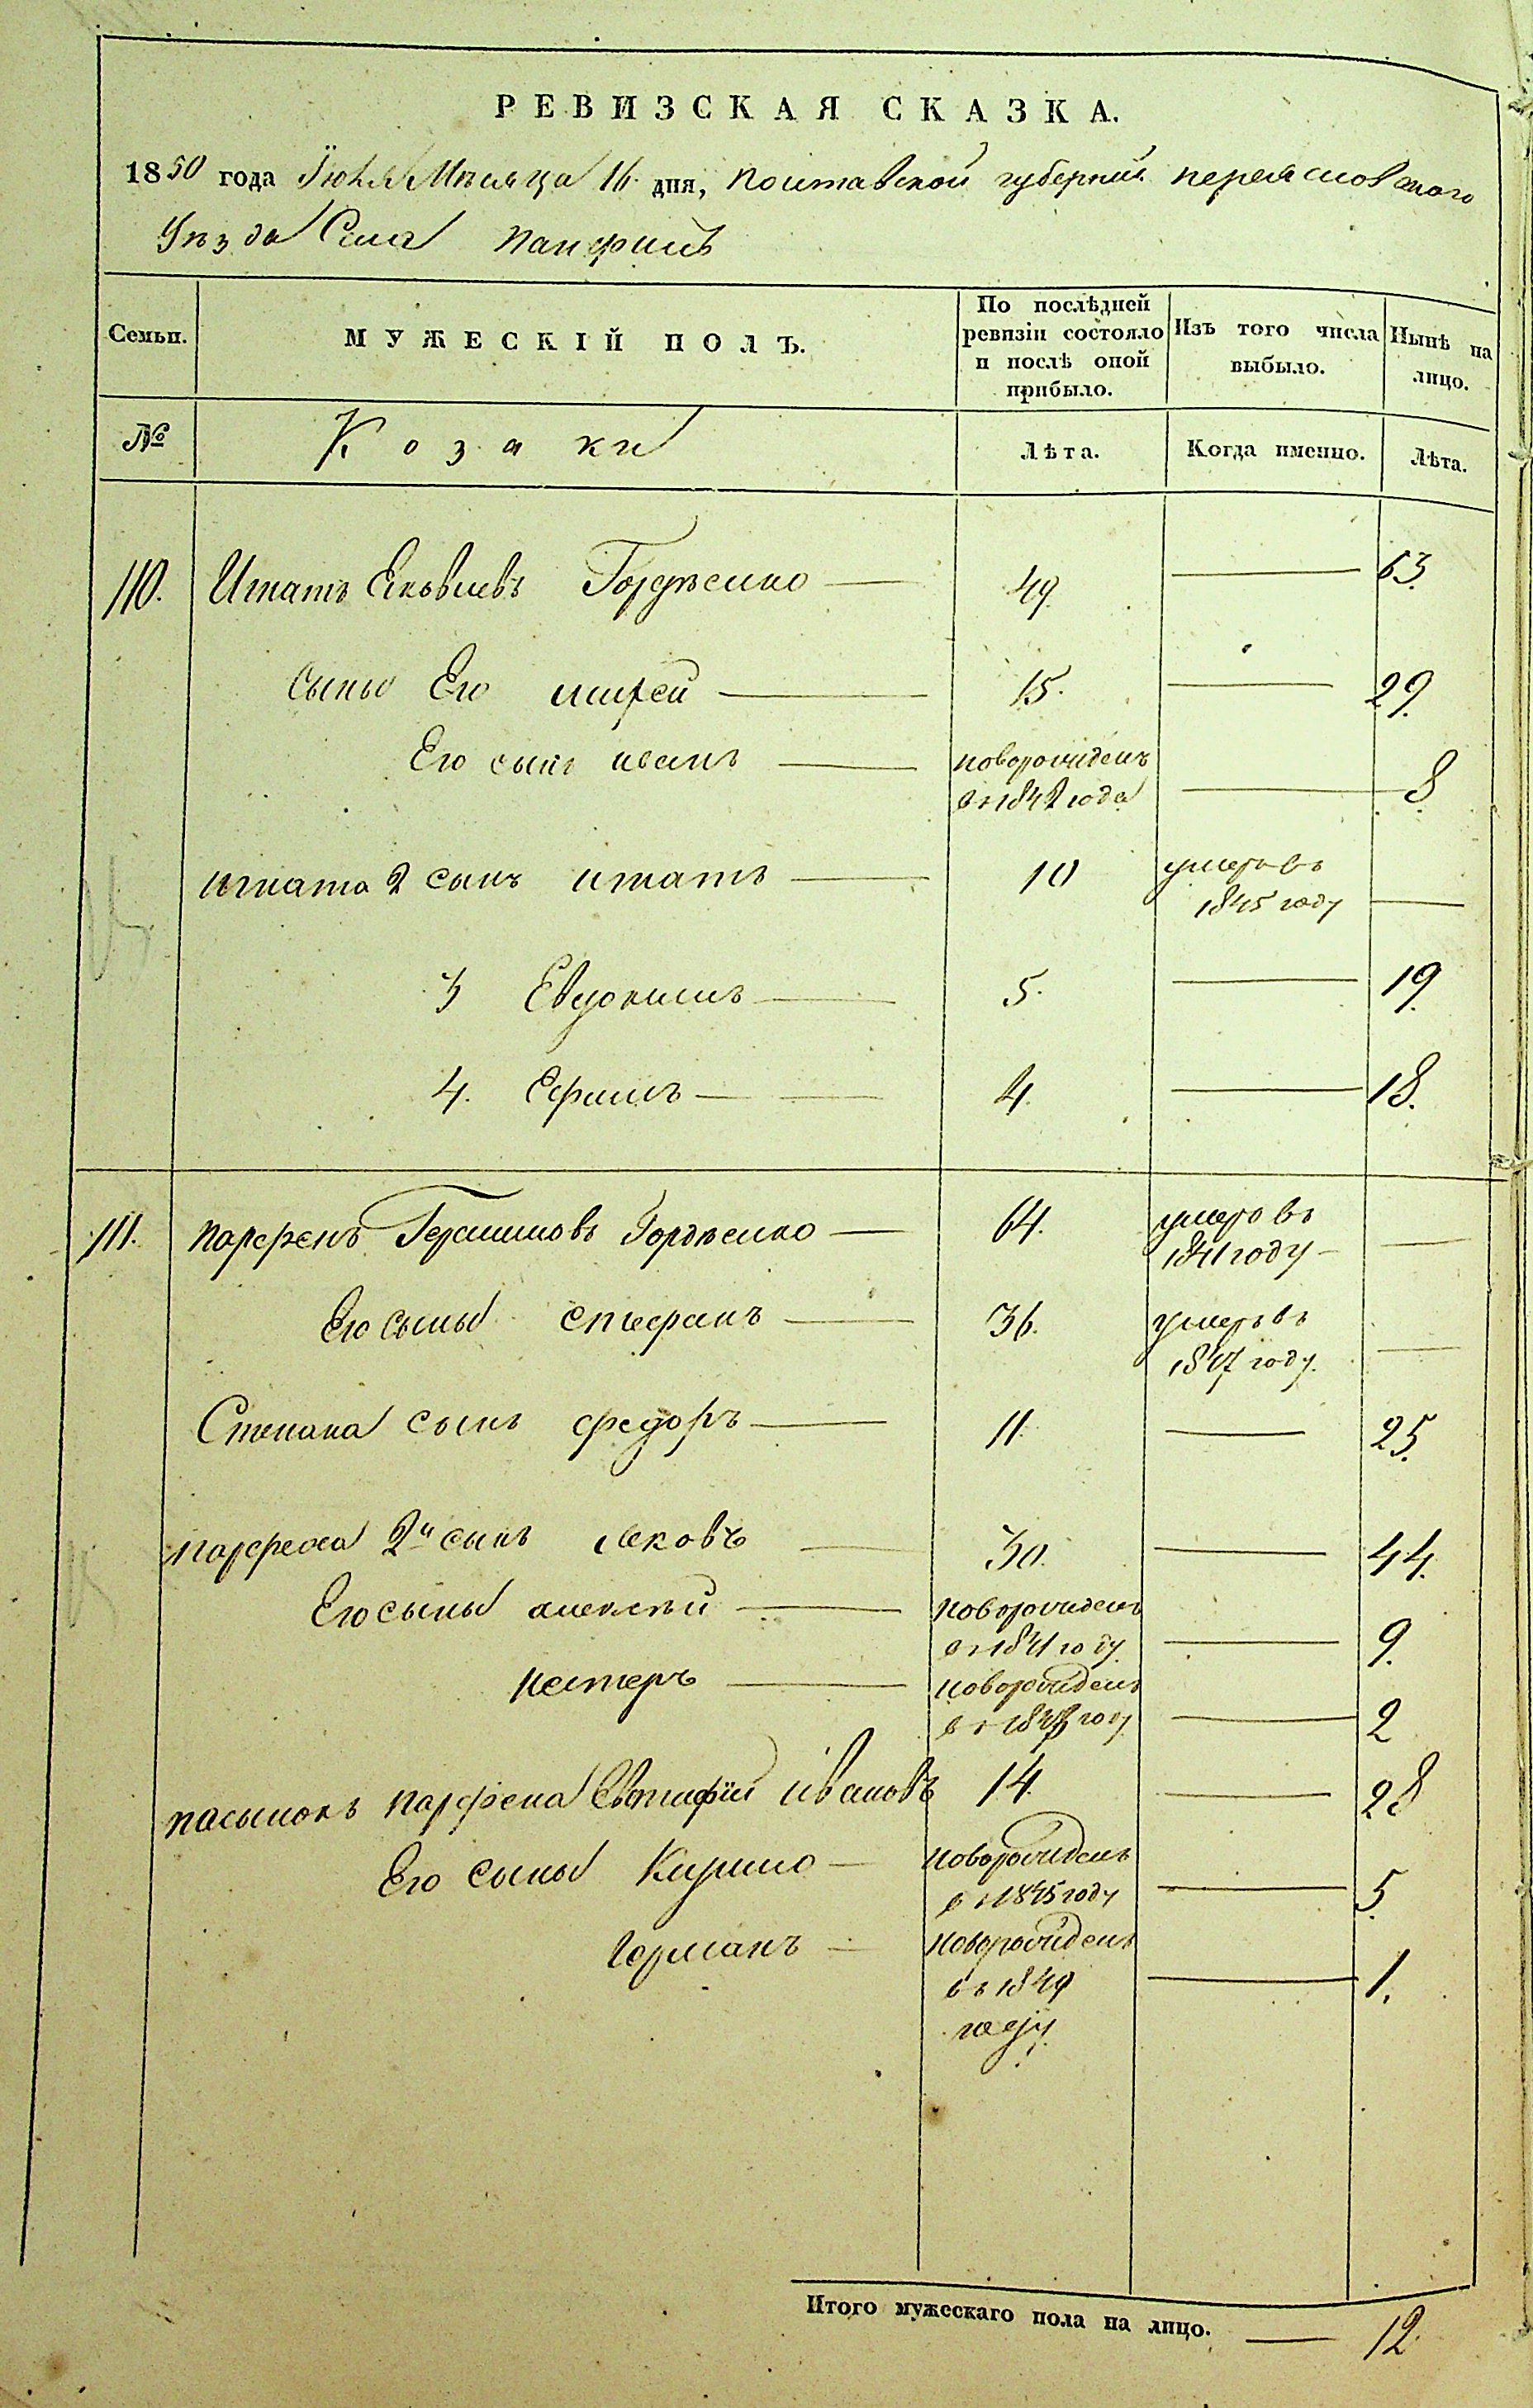 РЕВИЗСКАЯ СКАЗКА.
1850 года Іюля Мѣсяца 16 дня, полтавской губерніи переясловского
Уѣзда Села панфилъ
Семьи.
МУЖЕСКІЙ ПОЛЪ.
По послѣдней ревизіи состояло и послѣ оной прибыло.
Изъ того числа выбыло.
Нынѣ на лицо.
№
Козаки
Лѣта.
Когда именно.
Лѣта.
110. Игнатъ Яковлевъ Гордѣенко — 49. — 63.
Сыны Его — 15. — 29.
Его сынъ иванъ — новорожденъ въ 1842 года — 8.
игната 2 сынъ игнатъ — 10 умеръ въ 1845 году —
3 Евдокимъ — 5. — 19.
4. Ефимъ — 4. — 18.
111. парфенъ Герасимовъ Гордѣенко — 64. умеръ въ 1841 году —
Его сыны стефанъ — 36. умеръ въ 1847 году. —
Степана сынъ федоръ — 11. — 25.
парфена 2й сынъ яковъ — 30. — 44.
Его сыны алексѣй — новорожденъ въ 1841 году — 9.
нестеръ — новорожденъ въ 1848 году — 2
пасынокъ парфена Евстафій ивановъ 14. — 28
Его сыны Кирило — новорожденъ въ 1845 году — 5.
Германъ — новорожденъ въ 1849 году — 1.
Итого мужескаго пола на лицо. — 12.